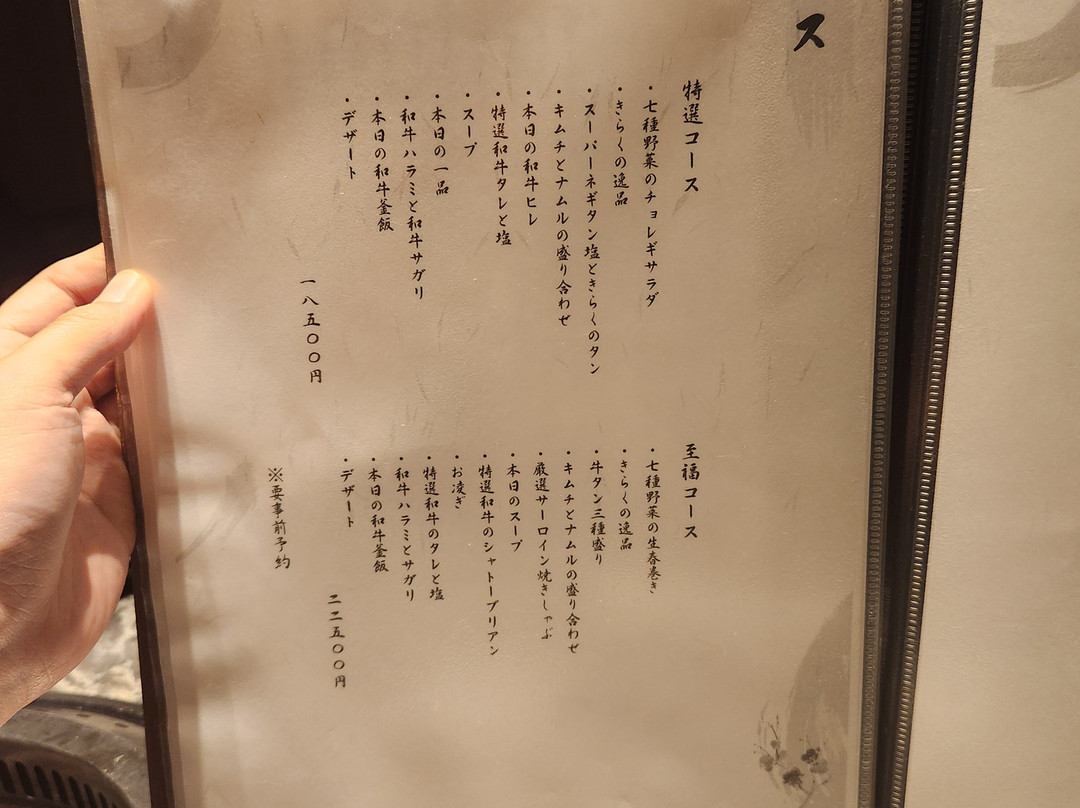 ス
特選コース
・七種野菜のチョレギサラダ
・きらくの逸品
・スーパーネギタン塩ときらくのタン
・キムチとナムルの盛り合わせ
・本日の和牛ヒレ
・特選和牛タレと塩
・スープ
・本日の一品
・和牛ハラミと和牛サガリ
・本日の和牛釜飯
・デザート
一八五〇〇円
至福コース
・七種野菜の生春巻き
・きらくの逸品
・牛タン三種盛り
・キムチとナムルの盛り合わせ
・厳選サーロイン焼きしゃぶ
・本日のスープ
・特選和牛のシャトーブリアン
・お凌ぎ
・特選和牛のタレと塩
・和牛ハラミとサガリ
・本日の和牛釜飯
・デザート
二二五〇〇円
※要事前予約